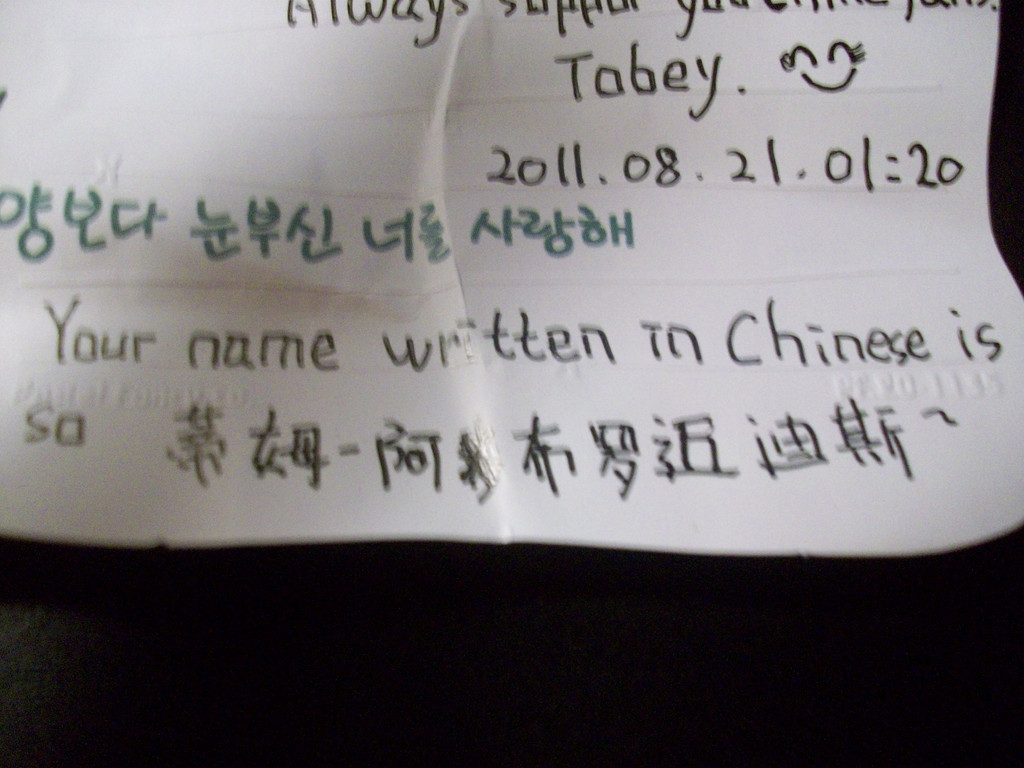 Always support you
Tobey.
2011.08.21.01:20
양보다 눈부신 너를 사랑해
Your name written in Chinese is
so 蒂姆-阿 布罗迈迪斯~